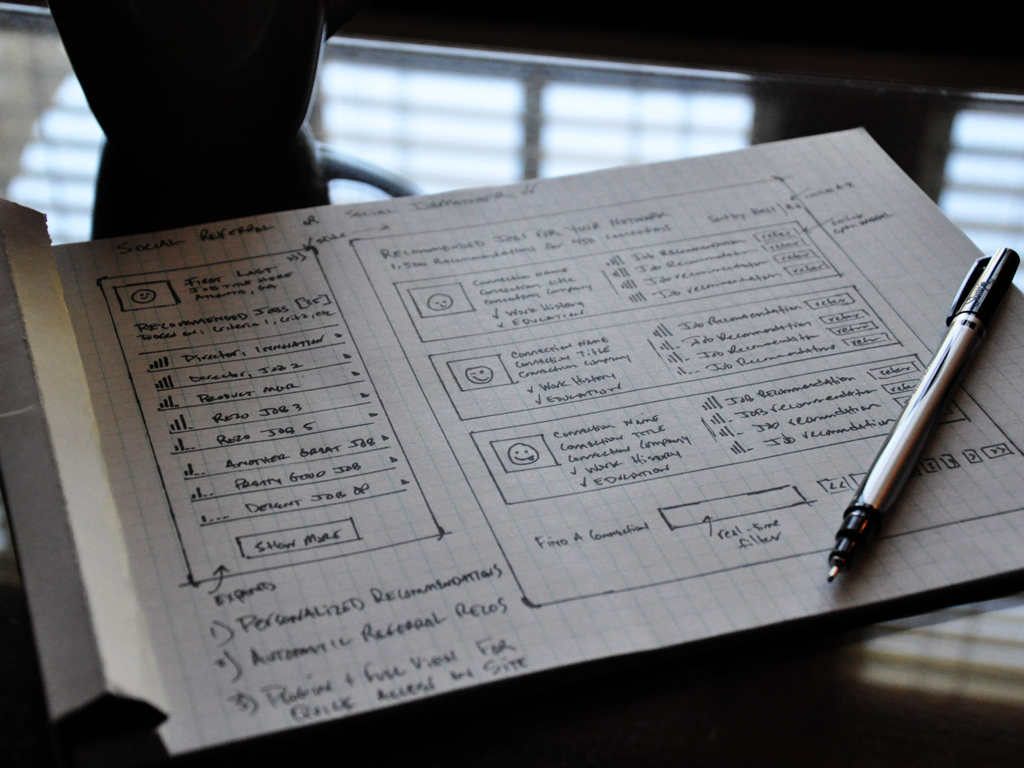 SOCIAL REFERRAL OR SOCIAL
FIRST LAST
JOB TITLE MORE
ATLANTA, GA
RECOMMENDED JOBS [35]
BASED ON: CRITERIA 1, CRIT 2, ETC
DIRECTOR, INNOVATION
DIRECTOR, JOB 2
PRODUCT MGR
RECO JOB 3
RECO JOB 5
ANOTHER GREAT JOB
PRETTY GOOD JOB
DECENT JOB OP
SHOW MORE
EXPAND
RECOMMENDED JOBS FOR YOUR NETWORK
1,500 Recommendations for 450 connections
Sort by Best
CONNECTION NAME
CONNECTION TITLE
CONNECTION COMPANY
✓ WORK HISTORY
✓ EDUCATION
JOB RECOMMENDATION
JOB RECOMMENDATION
JOB RECOMMENDATION
JOB RECOMMENDATION
refer
refer
refer
CONNECTION NAME
CONNECTION TITLE
CONNECTION COMPANY
✓ WORK HISTORY
✓ EDUCATION
JOB RECOMMENDATION
JOB RECOMMENDATION
JOB RECOMMENDATION
JOB RECOMMENDATION
refer
refer
refer
CONNECTION NAME
CONNECTION TITLE
CONNECTION COMPANY
✓ WORK HISTORY
✓ EDUCATION
JOB RECOMMENDATION
JOB RECOMMENDATION
JOB RECOMMENDATION
JOB RECOMMENDATION
refer
refer
FIND A CONNECTION
real-time
filter
1) PERSONALIZED RECOMMENDATIONS
2) AUTOMATIC REFERRAL RECOS
3) PLUGIN & FULL VIEW FOR
QUICK ACCESS ON SITE